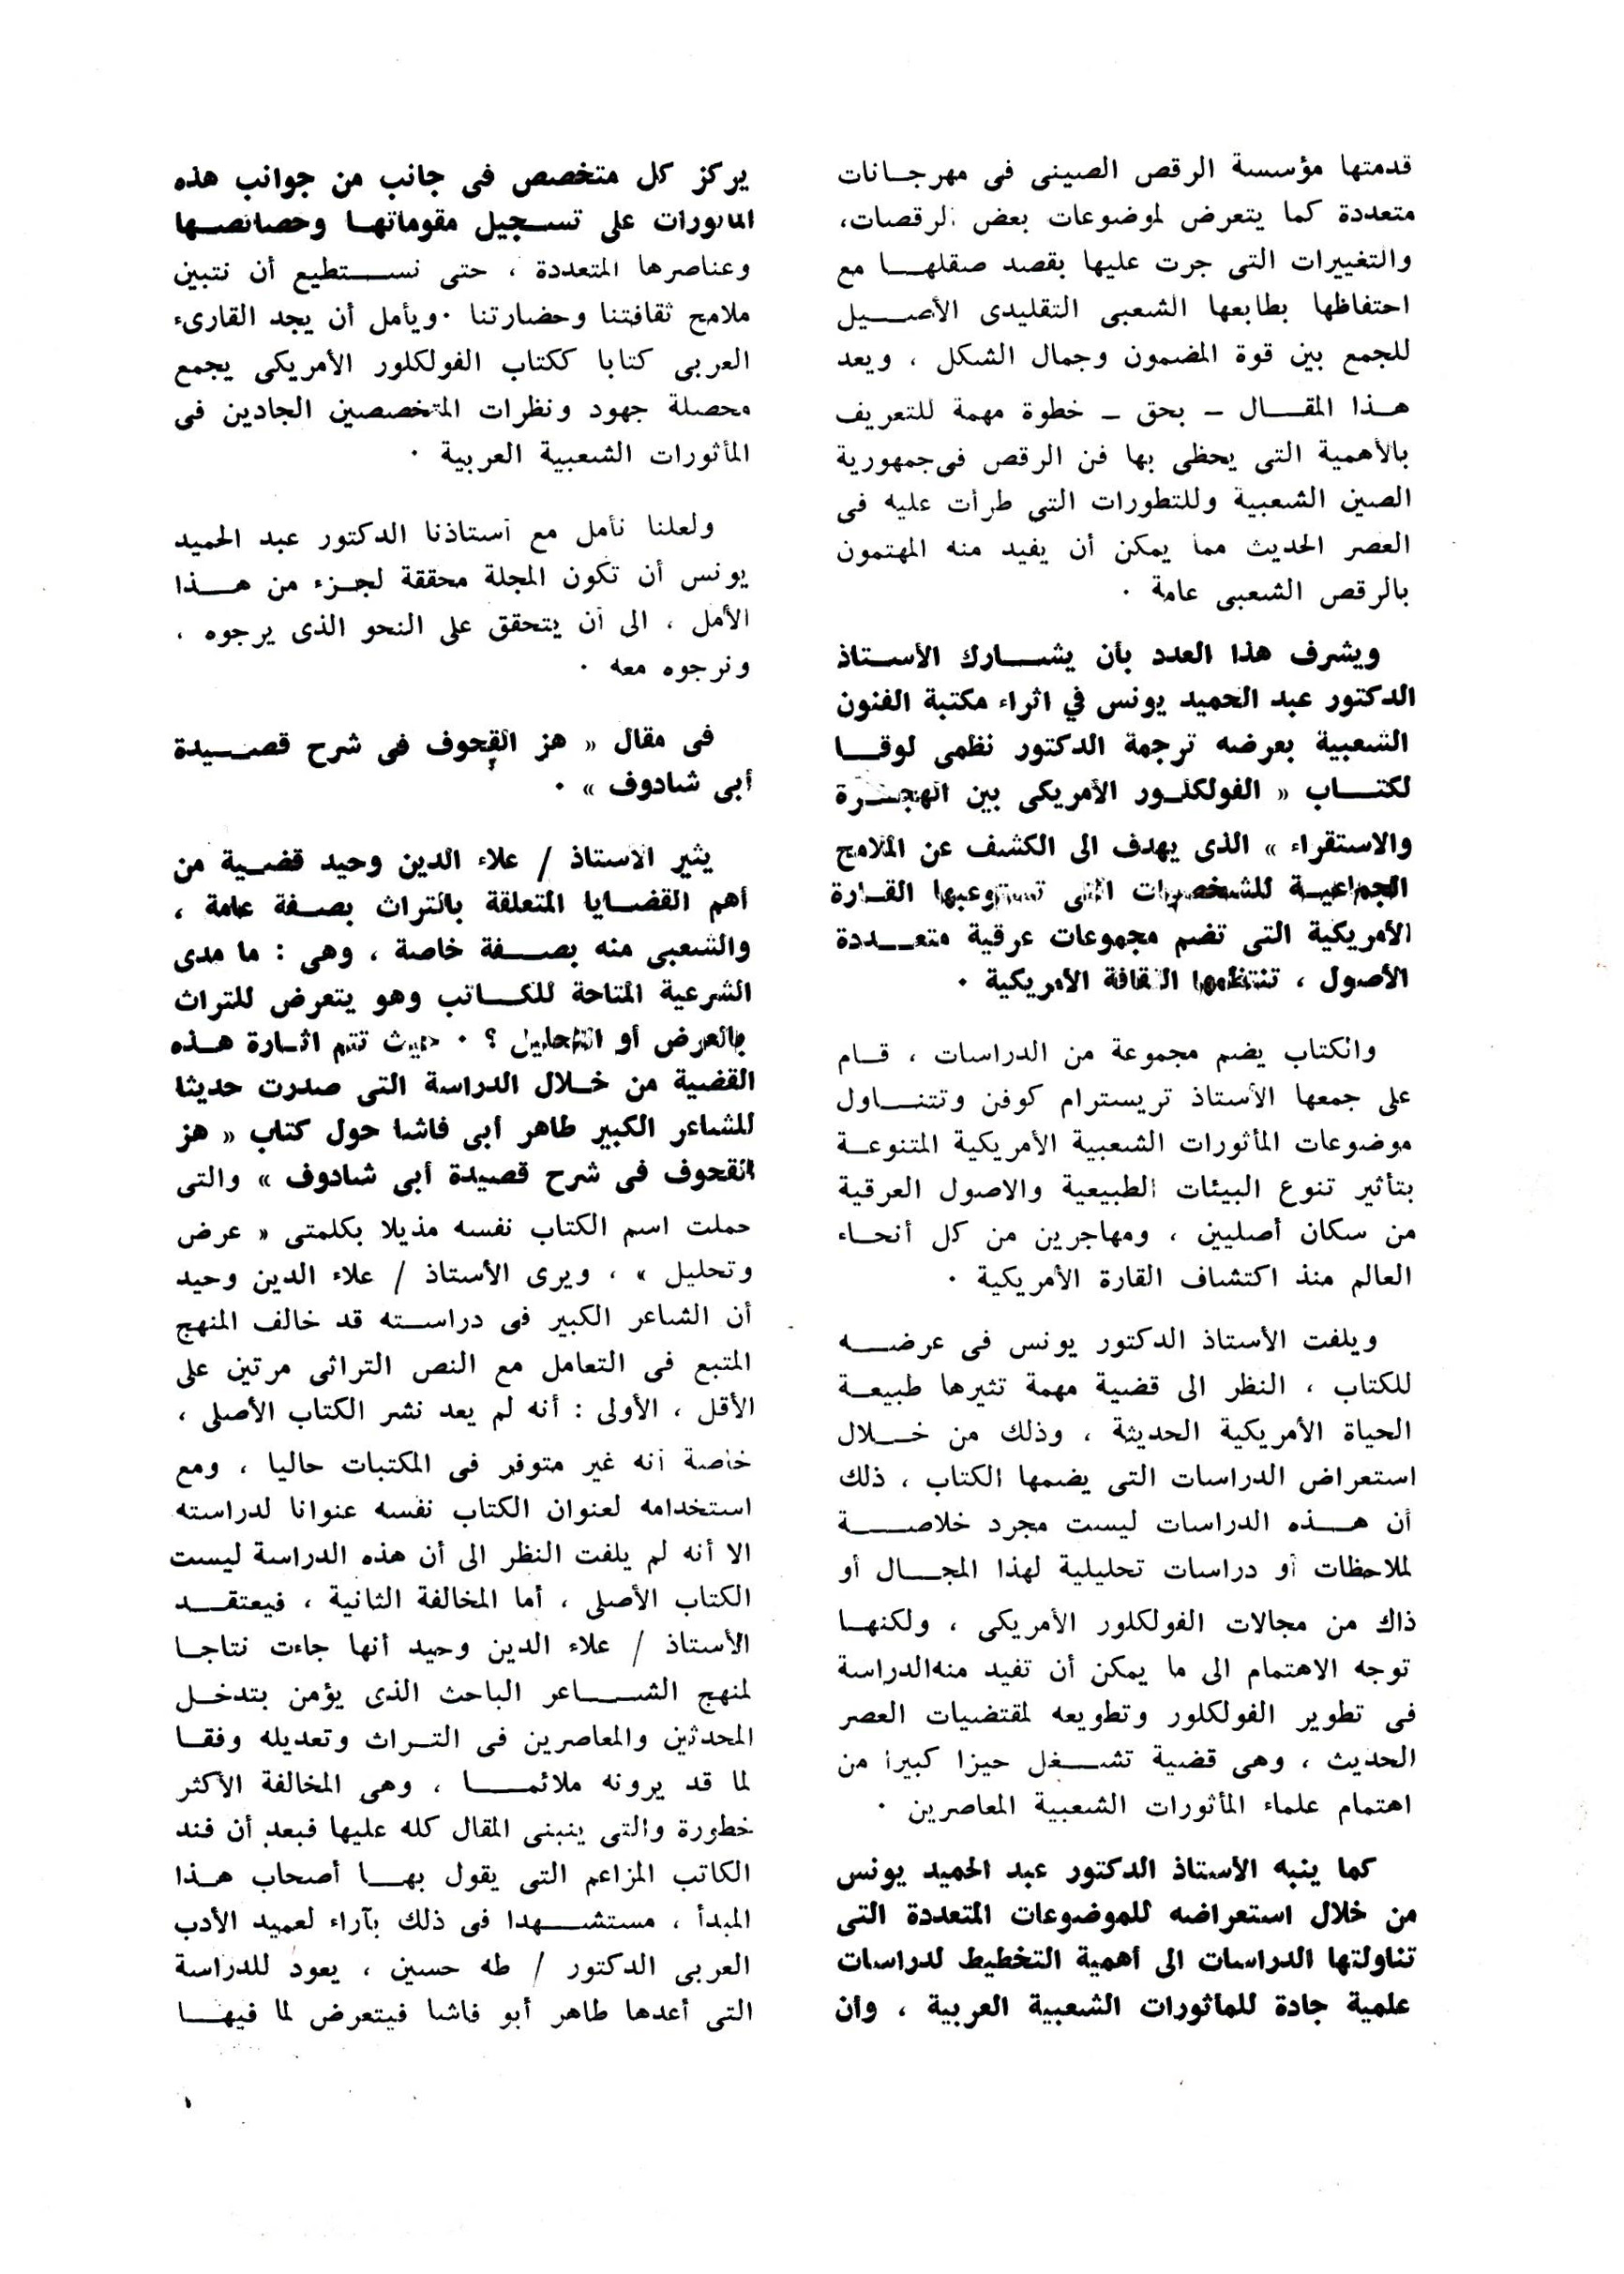 قدمتها مؤسسة الرقص الصينى فى مهرجانات
متعددة كما يتعرض لموضوعات بعض الرقصات،
والتغييرات التى جرت عليها بقصد صقلها مع
احتفاظها بطابعها الشعبى التقليدى الأصيل
للجمع بين قوة المضمون وجمال الشكل ، ويعد
هذا المقال – بحق – خطوة مهمة للتعريف
بالأهمية التى يحظى بها فن الرقص فى جمهورية
الصين الشعبية وللتطورات التى طرأت عليه فى
العصر الحديث مما يمكن أن يفيد منه المهتمون
بالرقص الشعبى عامة ٠
ويشرف هذا العدد بأن يشارك الأستاذ
الدكتور عبد الحميد يونس في اثراء مكتبة الفنون
الشعبية بعرضه ترجمة الدكتور نظمى لوقا
لكتاب « الفولكلور الأمريكى بين الهجرة
والاستقراء » الذى يهدف الى الكشف عن الملامح
الجماعية للشخصيات التى تستوعبها القارة
الأمريكية التى تضم مجموعات عرقية متعددة
الأصول ، تنتظمها الثقافة الأمريكية ٠
والكتاب يضم مجموعة من الدراسات ، قام
على جمعها الأستاذ تريسترام كوفن وتتناول
موضوعات المأثورات الشعبية الأمريكية المتنوعة
بتأثير تنوع البيئات الطبيعية والاصول العرقية
من سكان أصليين ، ومهاجرين من كل أنحاء
العالم منذ اكتشاف القارة الأمريكية ٠
ويلفت الأستاذ الدكتور يونس فى عرضه
للكتاب ، النظر الى قضية مهمة تثيرها طبيعة
الحياة الأمريكية الحديثة ، وذلك من خلال
استعراض الدراسات التى يضمها الكتاب ، ذلك
أن هذه الدراسات ليست مجرد خلاصة
لملاحظات أو دراسات تحليلية لهذا المجال أو
ذاك من مجالات الفولكلور الأمريكى ، ولكنها
توجه الاهتمام الى ما يمكن أن تفيد منه الدراسة
فى تطوير الفولكلور وتطويعه لمقتضيات العصر
الحديث ، وهى قضية تشغل حيزا كبيرا من
اهتمام علماء المأثورات الشعبية المعاصرين ٠
كما ينبه الأستاذ الدكتور عبد الحميد يونس
من خلال استعراضه للموضوعات المتعددة التى
تناولتها الدراسات الى أهمية التخطيط لدراسات
علمية جادة للمأثورات الشعبية العربية ، وأن
يركز كل متخصص فى جانب من جوانب هذه
المأثورات على تسجيل مقوماتها وخصائصها
وعناصرها المتعددة ، حتى نستطيع أن نتبين
ملامح ثقافتنا وحضارتنا ٠ ويأمل أن يجد القارىء
العربى كتابا ككتاب الفولكلور الأمريكى يجمع
محصلة جهود ونظرات المتخصصين الجادين فى
المأثورات الشعبية العربية ٠
ولعلنا نأمل مع أستاذنا الدكتور عبد الحميد
يونس أن تكون المجلة محققة لجزء من هذا
الأمل ، الى أن يتحقق على النحو الذى يرجوه ،
ونرجوه معه ٠
فى مقال « هز القحوف فى شرح قصيدة
أبى شادوف » ٠
يثير الأستاذ / علاء الدين وحيد قضية من
أهم القضايا المتعلقة بالتراث بصفة عامة ،
والشعبى منه بصفة خاصة ، وهى : ما مدى
الشرعية المتاحة للكاتب وهو يتعرض للتراث
بالعرض أو التحليل ؟ ٠ حيث تتم اثارة هذه
القضية من خلال الدراسة التى صدرت حديثا
للشاعر الكبير طاهر أبى فاشا حول كتاب « هز
القحوف فى شرح قصيدة أبى شادوف » والتى
حملت اسم الكتاب نفسه مذيلا بكلمتى « عرض
وتحليل » ، ويرى الأستاذ / علاء الدين وحيد
أن الشاعر الكبير فى دراسته قد خالف المنهج
المتبع فى التعامل مع النص التراثى مرتين على
الأقل ، الأولى : أنه لم يعد نشر الكتاب الأصلى ،
خاصة أنه غير متوفر فى المكتبات حاليا ، ومع
استخدامه لعنوان الكتاب نفسه عنوانا لدراسته
الا أنه لم يلفت النظر الى أن هذه الدراسة ليست
الكتاب الأصلى ، أما المخالفة الثانية ، فيعتقد
الأستاذ / علاء الدين وحيد أنها جاءت نتاجا
لمنهج الشاعر الباحث الذى يؤمن بتدخل
المحدثين والمعاصرين فى التراث وتعديله وفقا
لما قد يرونه ملائما ، وهى المخالفة الأكثر
خطورة والتى ينبنى المقال كله عليها فبعد أن فند
الكاتب المزاعم التى يقول بها أصحاب هذا
المبدأ ، مستشهدا فى ذلك بآراء لعميد الأدب
العربى الدكتور / طه حسين ، يعود للدراسة
التى أعدها طاهر أبو فاشا فيتعرض لما فيها